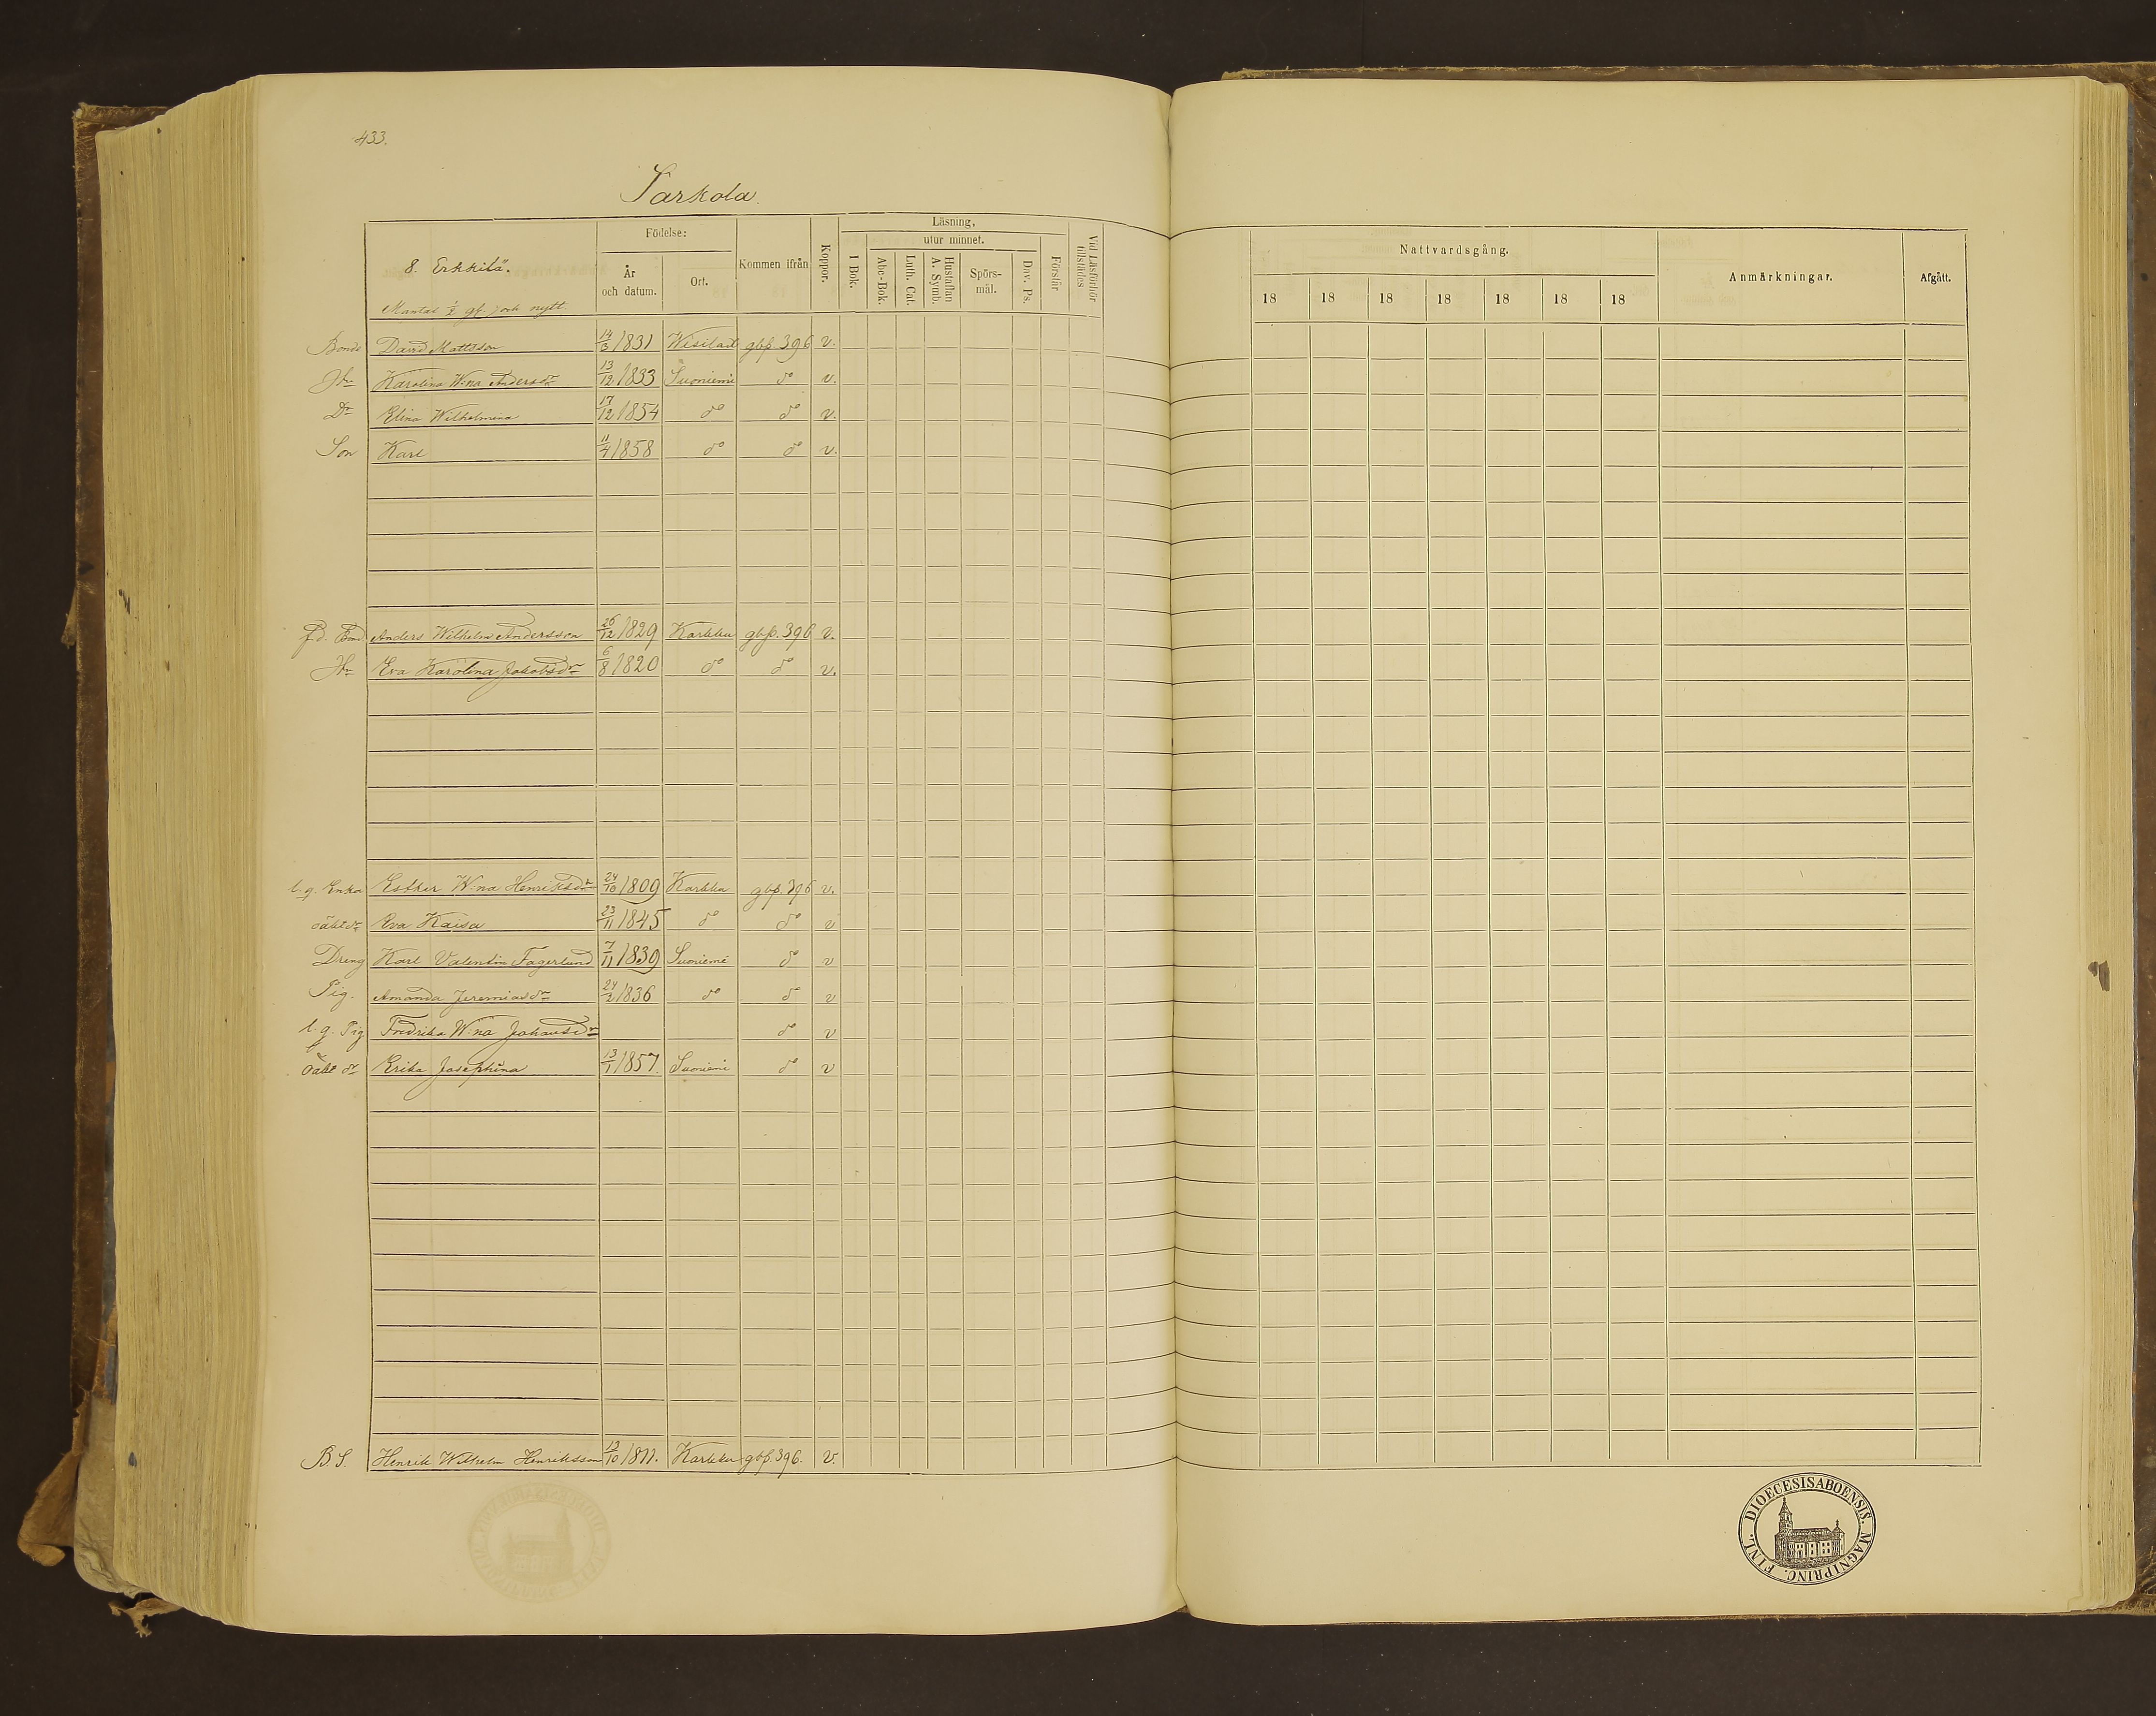 433.
Sarkola.
8. Erkkilä.
Mantal 1/2 gl. och nytt.
Födelse:
År och datum.
Ort.
Kommen ifrån
Koppor.
Läsning,
utur minnet.
I Bok.
Abc-Bok.
Luth. Cat.
Hustaflan A. Symb.
Spörsmål.
Dav. Ps.
Förstår
Vid Läsförhör tillstädes
Nattvardsgång.
18 18 18 18 18 18 18
Anmärkningar.
Afgått.
Bonde David Mattsson 14/3 1831 gbp. 396 v.
Hu Karolina W:na Andersdr 13/12 1833 Suoniemi do v.
Dr Elina Wilhelmina 17/12 1854 do do v.
Son Karl 11/4 1858 do do v.
f.d. Bond. Anders Wilhelm Andersson 26/12 1829 Karkku gbp. 396 v.
Hu Eva Karolina Jakobsdr 6/8 1820 do do v.
l.g. Enka Esther W:na Henriksdr 24/10 1809 Karkku gbp. 396 v.
oäkt dr Eva Kaisa 23/11 1845 do do v
Dreng Karl Valentin Fagerlund 7/11 1839 Suoniemi do v
Pig. Amanda Jeremiasdr 24/2 1836 do do v
l.g. Pig Fredrika W:na Johansdr do v
oäkt dr Erika Josephina 13/1 1857. Suoniemi do v
B. S. Henrik Wilhelm Henriksson 12/10 1811. Karkku gbp. 396. v.
DIOECESIS ABOENSIS. MAGNI PRINC. FINL.